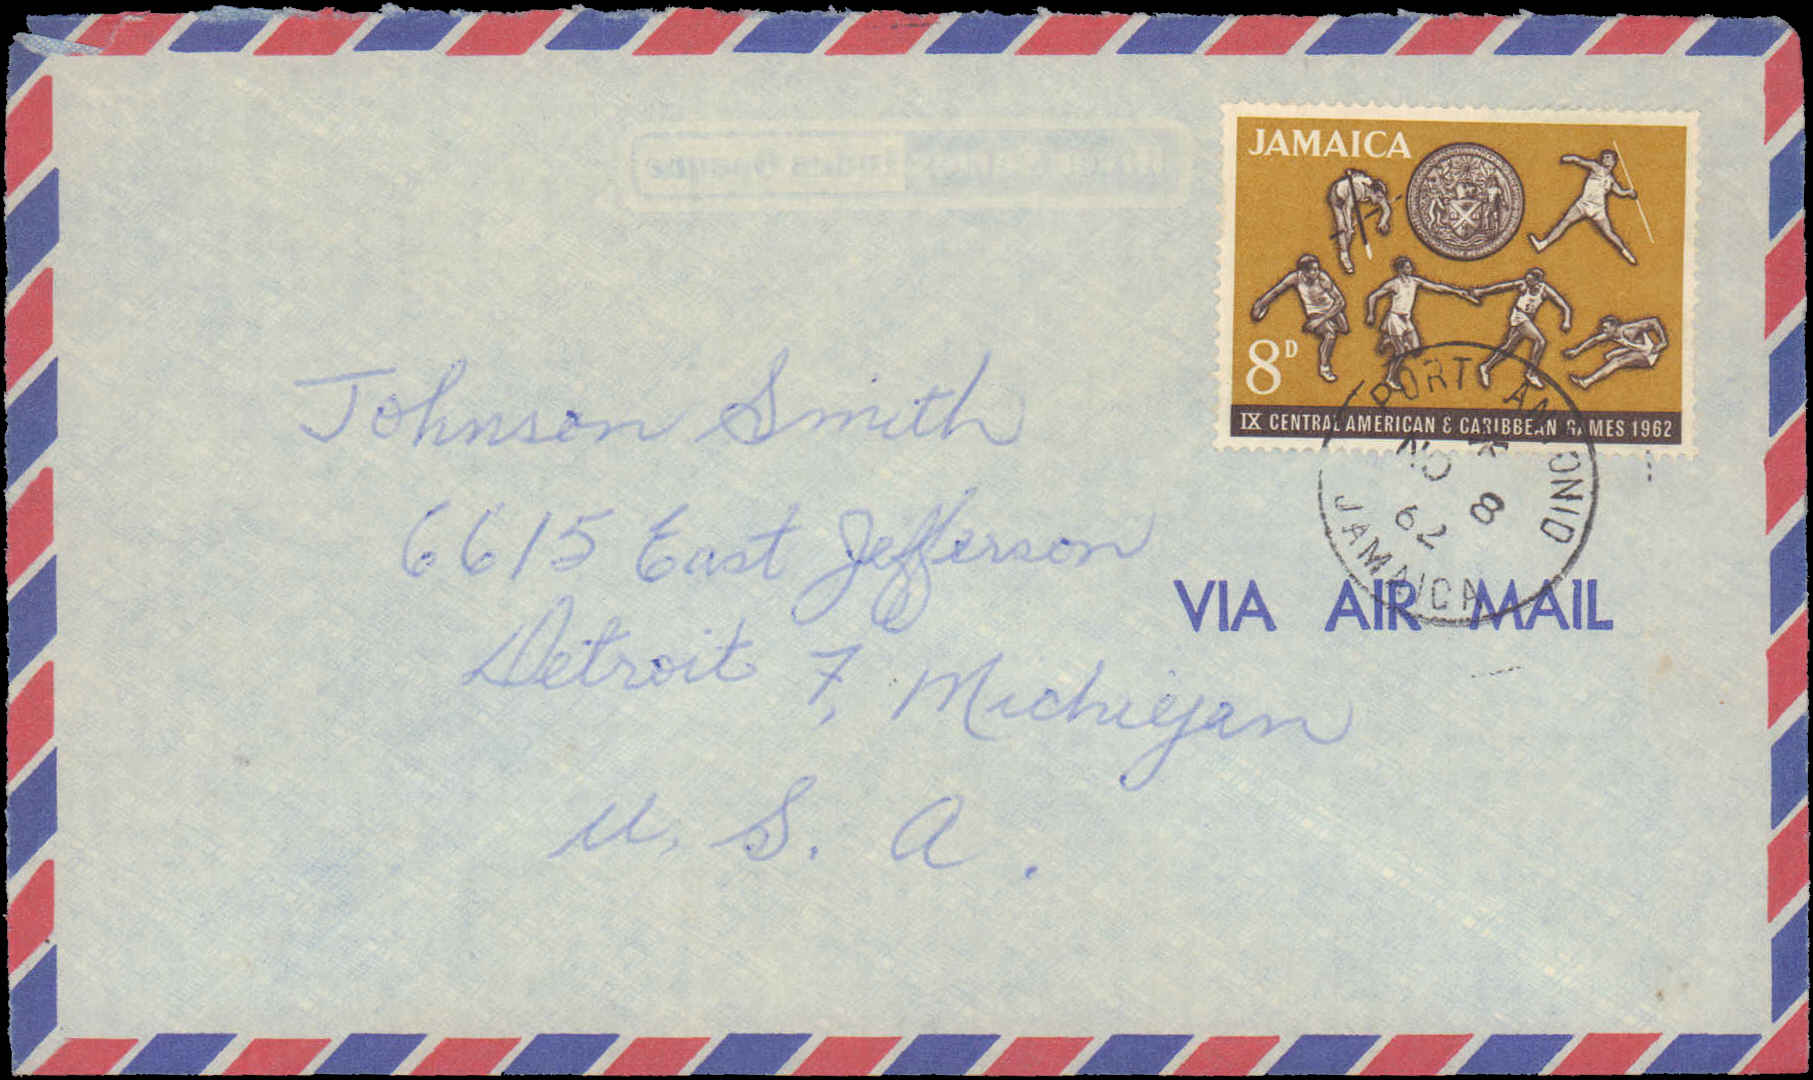 JAMAICA
8D
IX CENTRAL AMERICAN & CARIBBEAN GAMES 1962
PORT ANTONIO
NO 8
62
JAMAICA
VIA AIR MAIL
Johnson Smith
6615 East Jefferson
Detroit 7, Michigan
U. S. A.